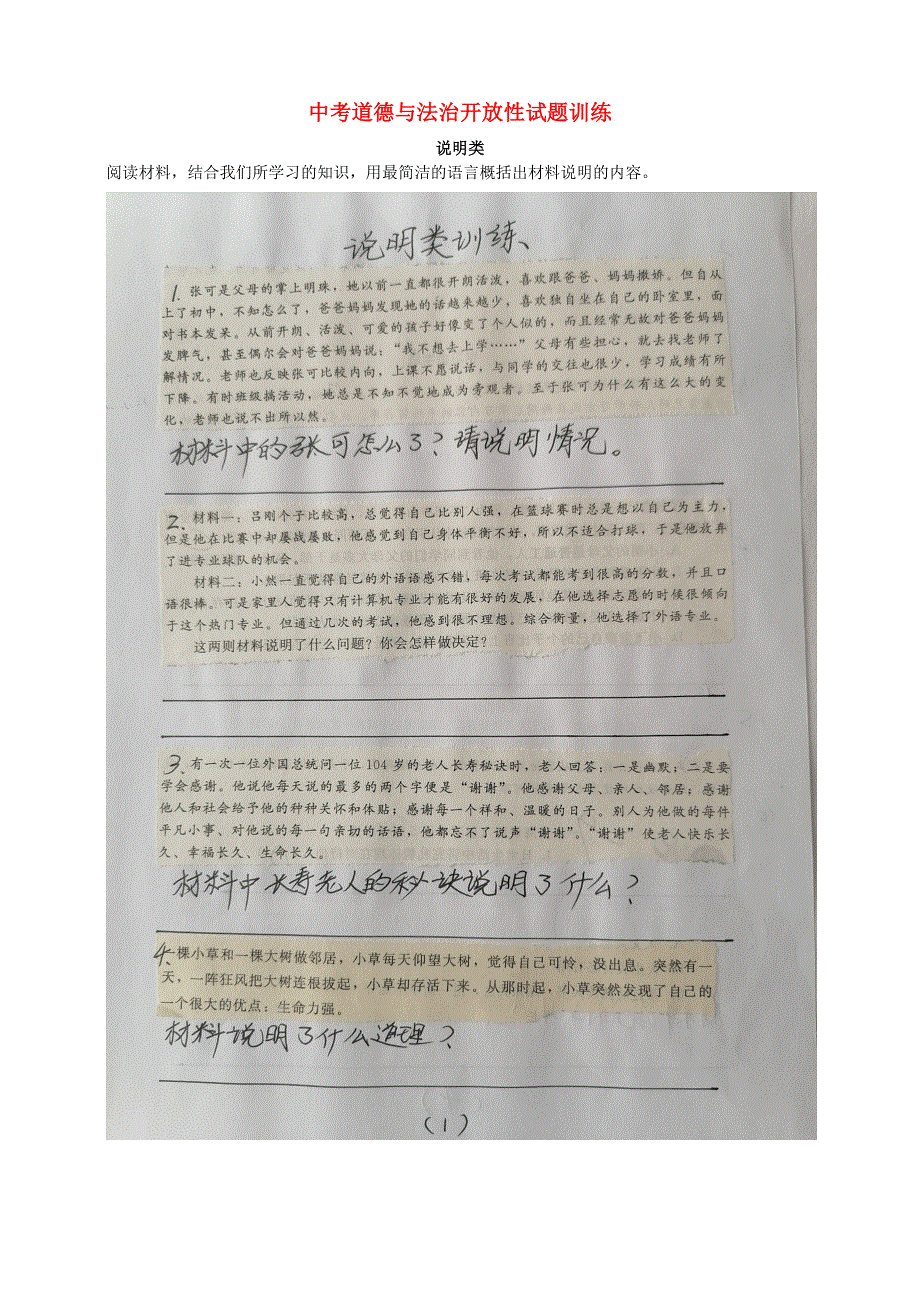 中考道德与法治开放性试题训练
说明类
阅读材料，结合我们所学习的知识，用最简洁的语言概括出材料说明的内容。
说明类训练、
1. 张可是父母的掌上明珠，她以前一直都很开朗活泼，喜欢跟爸爸、妈妈撒娇。但自从
上了初中，不知怎么了，爸爸妈妈发现她的话越来越少，喜欢独自坐在自己的卧室里，面
对书本发呆。从前开朗、活泼、可爱的孩子好像变了个人似的，而且经常无故对爸爸妈妈
发脾气，甚至偶尔会对爸爸妈妈说：“我不想去上学……”父母有些担心，就去找老师了
解情况。老师也反映张可比较内向，上课不愿说话，与同学的交往也很少，学习成绩有所
下降。有时班级搞活动，她总是不知不觉地成为旁观者。至于张可为什么有这么大的变
化，老师也说不出所以然。
材料中的张可怎么了？请说明情况。
2. 材料一：吕刚个子比较高，总觉得自己比别人强，在篮球赛时总是想以自己为主力，
但是他在比赛中却屡战屡败，他感觉到自己身体平衡不好，所以不适合打球，于是他放弃
了进专业球队的机会。
材料二：小然一直觉得自己的外语语感不错，每次考试都能考到很高的分数，并且口
语很棒。可是家里人觉得只有计算机专业才能有很好的发展，在他选择志愿的时候很倾向
于这个热门专业。但通过几次的考试，他感到很不理想。综合衡量，他选择了外语专业。
这两则材料说明了什么问题？你会怎样做决定？
3. 有一次一位外国总统问一位 104 岁的老人长寿秘诀时，老人回答：一是幽默；二是要
学会感谢。他说他每天说的最多的两个字便是“谢谢”。他感谢父母、亲人、邻居；感谢
他人和社会给予他的种种关怀和体贴；感谢每一个祥和、温暖的日子。别人为他做的每件
平凡小事、对他说的每一句亲切的话语，他都忘不了说声“谢谢”。“谢谢”使老人快乐长
久、幸福长久、生命长久。
材料中长寿老人的秘诀说明了什么？
4、一棵小草和一棵大树做邻居，小草每天仰望大树，觉得自己可怜，没出息。突然有一
天，一阵狂风把大树连根拔起，小草却存活下来。从那时起，小草突然发现了自己的
一个很大的优点：生命力强。
材料说明了什么道理？
（1）